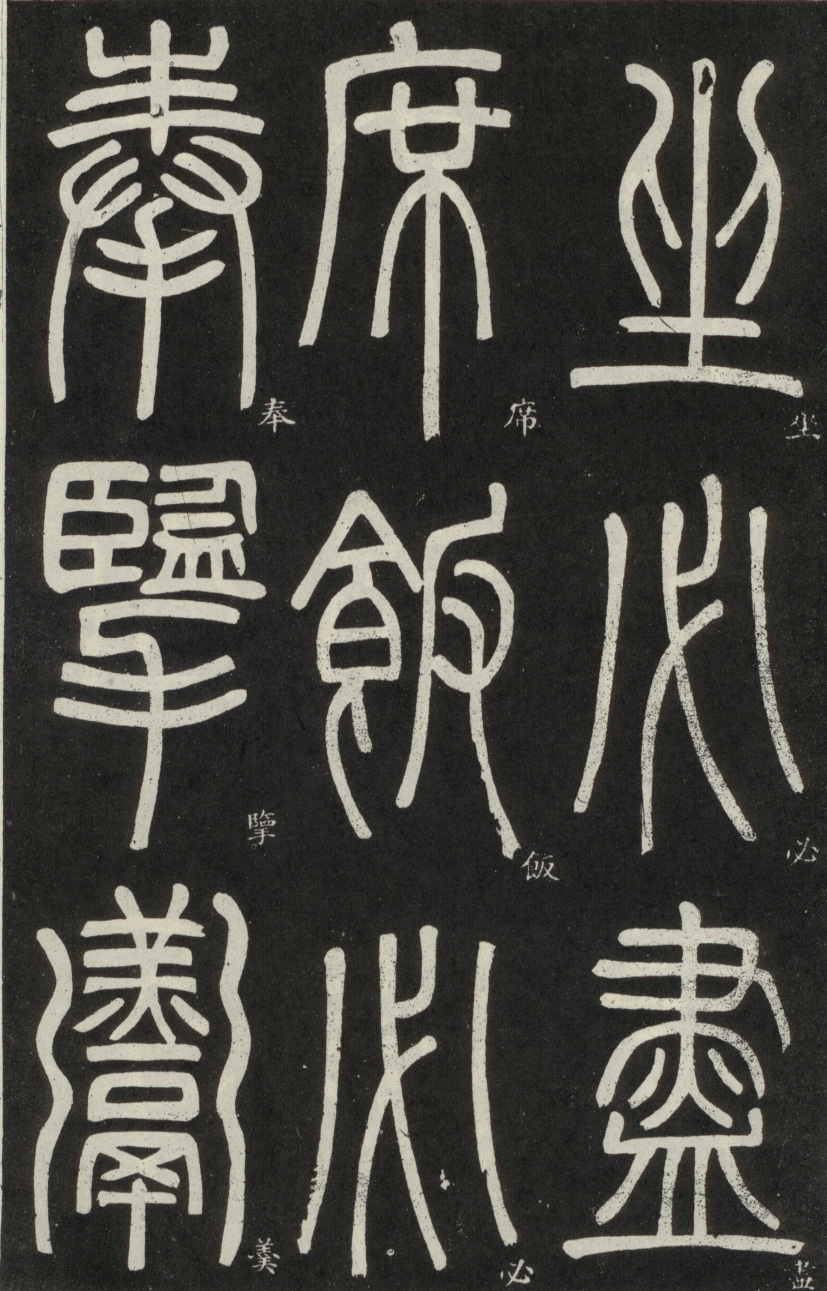 坐必盡
坐必盡
席飯必
席飯必
奉擥羹
奉擥羹